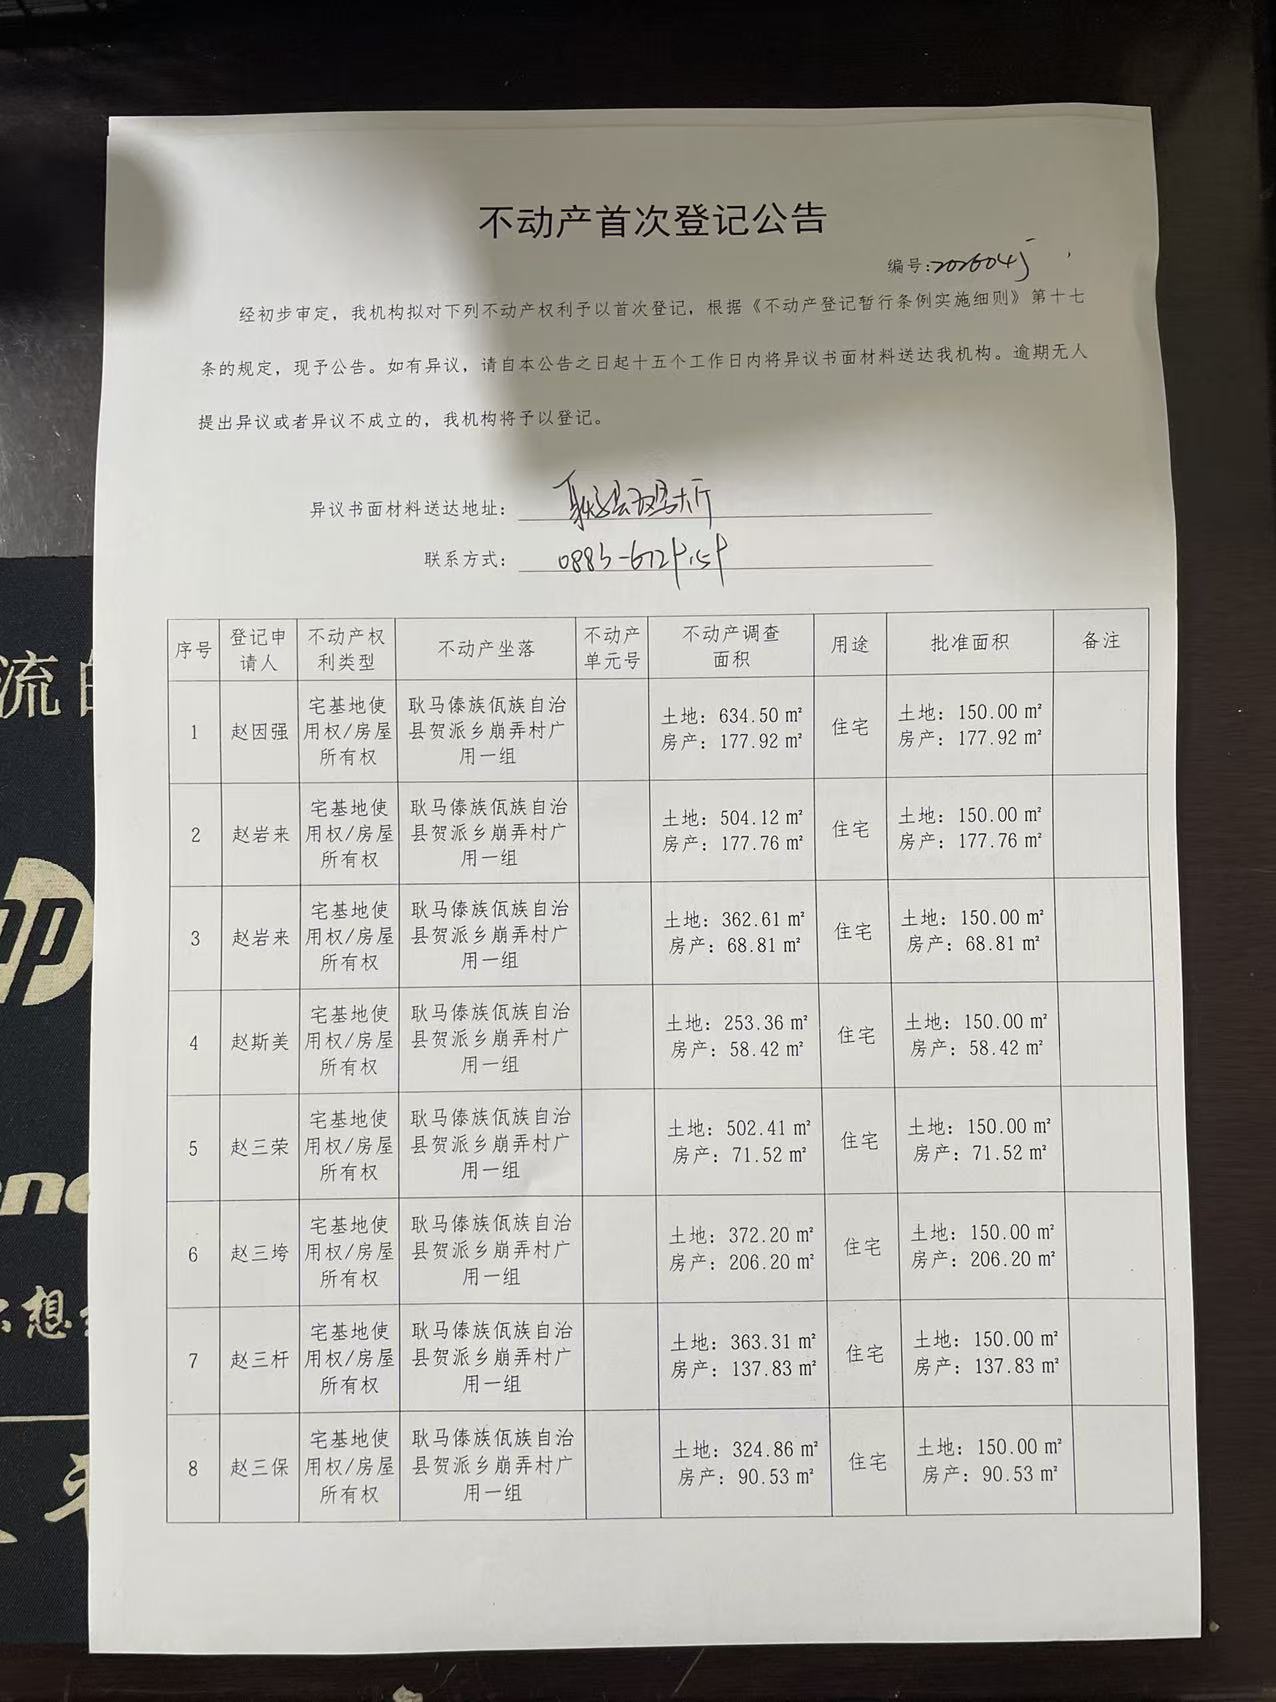 不动产首次登记公告
编号:2026045
经初步审定，我机构拟对下列不动产权利予以首次登记，根据《不动产登记暂行条例实施细则》第十七
条的规定，现予公告。如有异议，请自本公告之日起十五个工作日内将异议书面材料送达我机构。逾期无人
提出异议或者异议不成立的，我机构将予以登记。
异议书面材料送达地址：
联系方式：0883-
序号 登记申请人 不动产权利类型 不动产坐落 不动产单元号 不动产调查面积 用途 批准面积 备注
1 赵因强 宅基地使用权/房屋所有权 耿马傣族佤族自治县贺派乡崩弄村广用一组 土地：634.50㎡ 房产：177.92㎡ 住宅 土地：150.00㎡ 房产：177.92㎡
2 赵岩来 宅基地使用权/房屋所有权 耿马傣族佤族自治县贺派乡崩弄村广用一组 土地：504.12㎡ 房产：177.76㎡ 住宅 土地：150.00㎡ 房产：177.76㎡
3 赵岩来 宅基地使用权/房屋所有权 耿马傣族佤族自治县贺派乡崩弄村广用一组 土地：362.61㎡ 房产：68.81㎡ 住宅 土地：150.00㎡ 房产：68.81㎡
4 赵斯美 宅基地使用权/房屋所有权 耿马傣族佤族自治县贺派乡崩弄村广用一组 土地：253.36㎡ 房产：58.42㎡ 住宅 土地：150.00㎡ 房产：58.42㎡
5 赵三荣 宅基地使用权/房屋所有权 耿马傣族佤族自治县贺派乡崩弄村广用一组 土地：502.41㎡ 房产：71.52㎡ 住宅 土地：150.00㎡ 房产：71.52㎡
6 赵三垮 宅基地使用权/房屋所有权 耿马傣族佤族自治县贺派乡崩弄村广用一组 土地：372.20㎡ 房产：206.20㎡ 住宅 土地：150.00㎡ 房产：206.20㎡
7 赵三杆 宅基地使用权/房屋所有权 耿马傣族佤族自治县贺派乡崩弄村广用一组 土地：363.31㎡ 房产：137.83㎡ 住宅 土地：150.00㎡ 房产：137.83㎡
8 赵三保 宅基地使用权/房屋所有权 耿马傣族佤族自治县贺派乡崩弄村广用一组 土地：324.86㎡ 房产：90.53㎡ 住宅 土地：150.00㎡ 房产：90.53㎡
流
hp
想